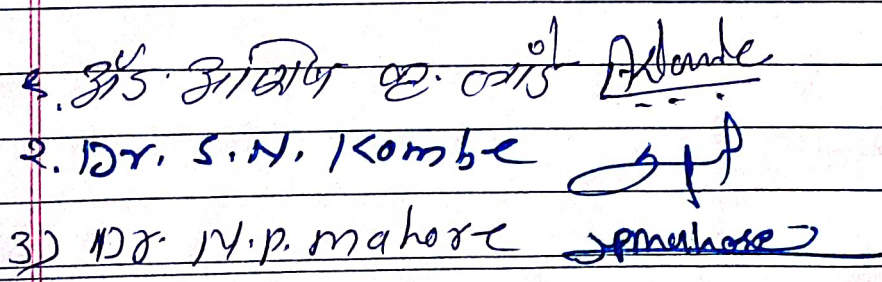 १. ॲड. आशिष व्ही. लांडे
2. Dr. S.N. Kombe
3) Dr. N.P. mahore